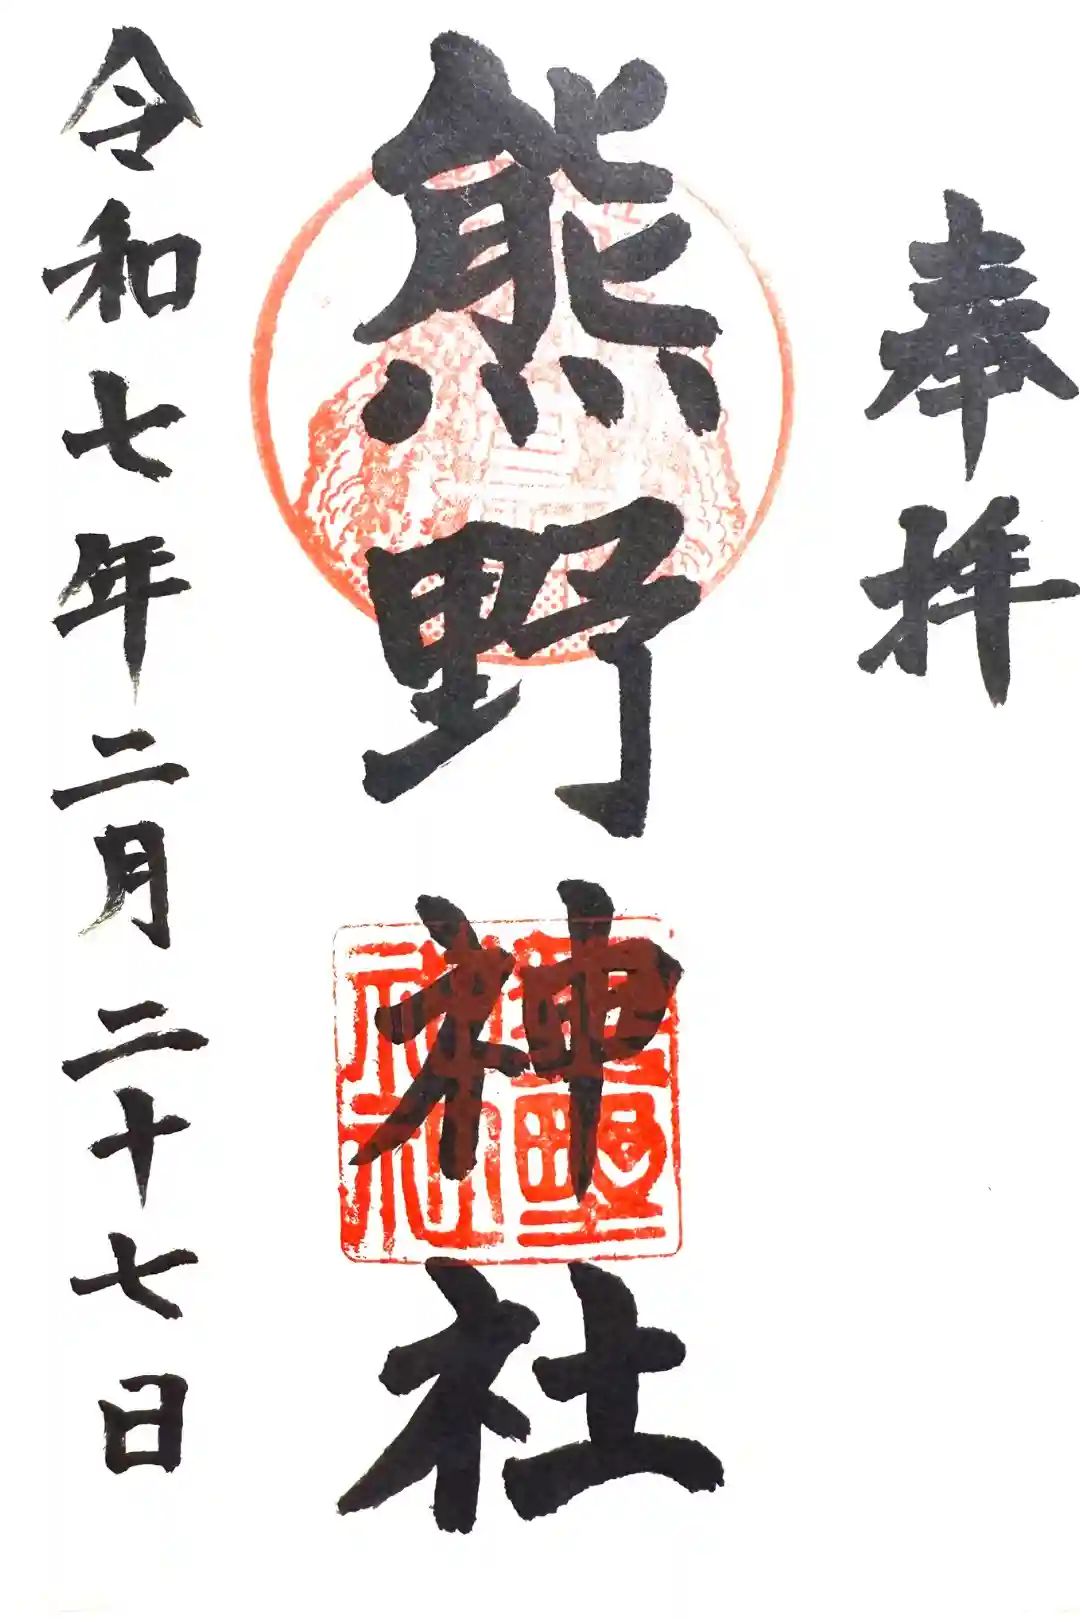 奉拝
熊野神社
令和七年二月二十七日
熊野
神社